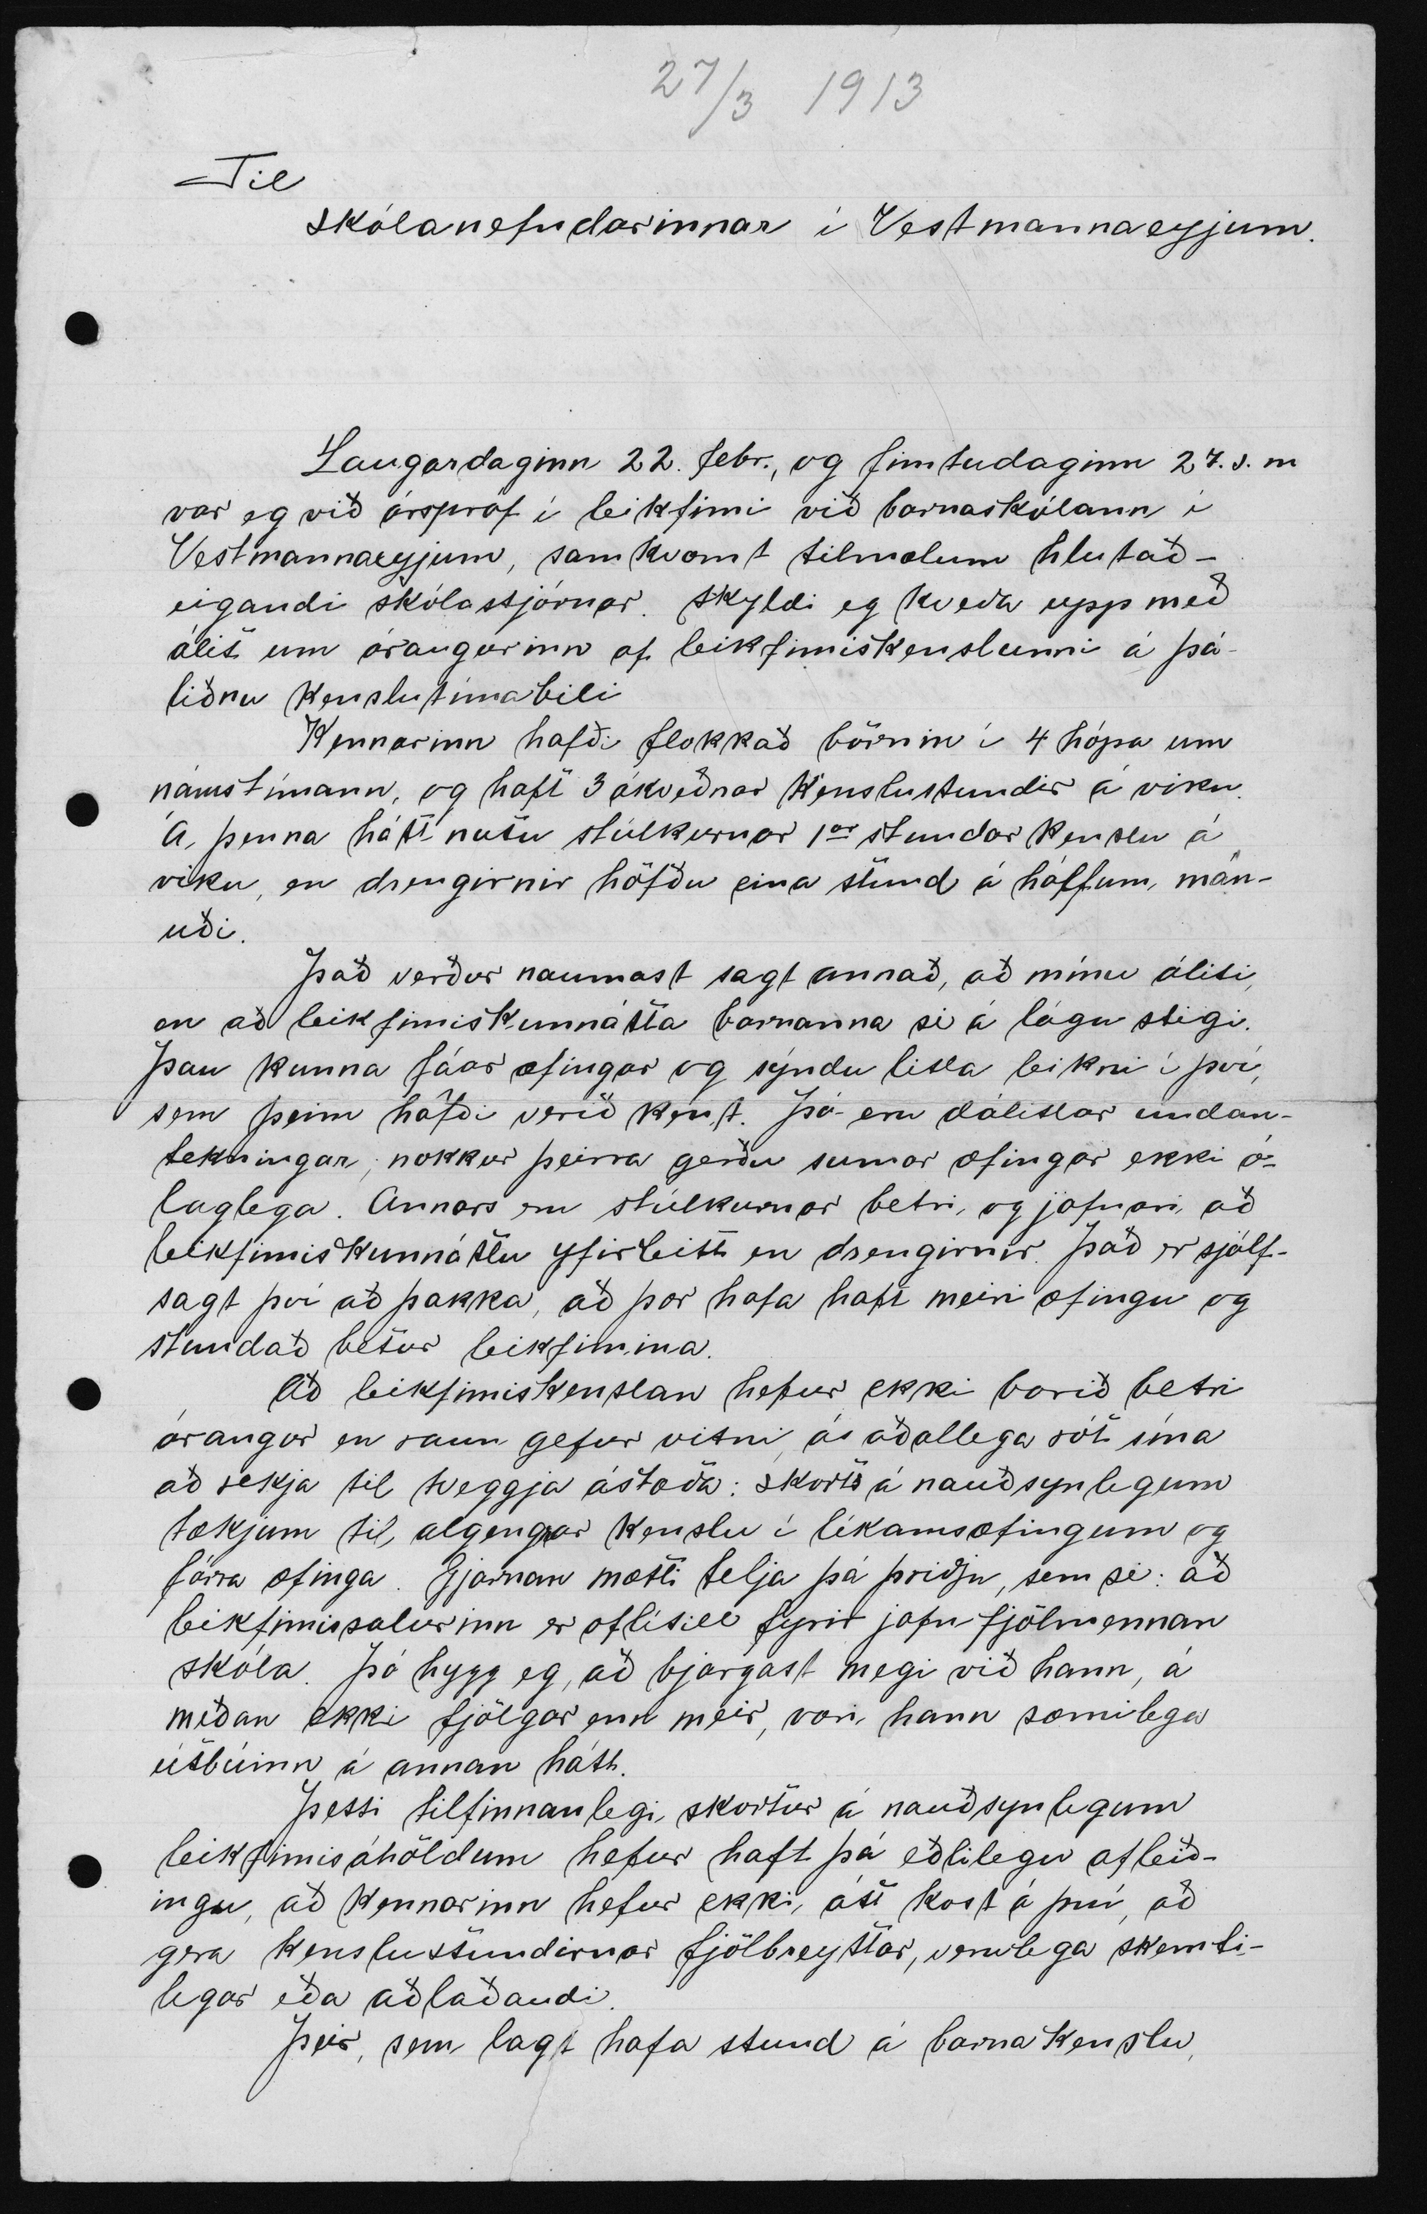 27/3 1913
Til
skólanefndarinnar í Vestmannaeyjum.
Laugardaginn 22. febr., og fimtudaginn 27. s. m
var eg við árspróf í leikfimi við barnaskólann í
Vestmannaeyjum, samkvæmt tilmælum hlutað-
eigandi skólastjórnar. Skyldi eg kveða upp með
álit um árangurinn af leikfimiskenslunni á þá-
liðnu kenslutímabili
Kennarinn hafði flokkað börnin í 4 hópa um
námstímann, og haft 3 ákveðnar kenslustundir á viku.
Á þenna hátt nutu stúlkurnar 1ar stundar kenslu á
viku, en drengirnir höfðu eina stund á hálfum mán-
uði.
Það verður naumast sagt annað, að mínu áliti,
en að leikfimiskunnátta barnanna sé á lágu stigi.
Þau kunna fáar æfingar og sýndu litla leikni í því,
sem þeim hafði verið kent. Þó eru dálitlar undan-
tekningar; nokkur þeirra gerðu sumar æfingar ekki ó-
laglega. Annars eru stúlkurnar betri, og jafnari, að
leikfimiskunnáttu yfirleitt en drengirnir. Það er sjálf-
sagt því að þakka, að þær hafa haft meiri æfingu og
stundað betur leikfimina.
Að leikfimiskenslan hefur ekki borið betri
árangur en raun gefur vitni, á aðallega rót sína
að rekja til tveggja ástæða: skorts á nauðsynlegum
tækjum til algengrar kenslu í líkamsæfingum og
færra æfinga. Gjarnan mætti telja þá þriðju, sem sé: að
leikfimissalurinn er oflítill fyrir jafn fjölmennan
skóla. Þó hygg eg, að bjargast megi við hann, á
meðan ekki fjölgar enn meir, væri hann sæmilega
útbúinn á annan hátt.
Þessi tilfinnanlegi skortur á nauðsynlegum
leikfimisáhöldum hefur haft þá eðlilegu afleið-
ingu, að kennarinn hefur ekki átt kost á því, að
gera kenslustundirnar fjölbreyttar, verulega skemti-
legar eða aðlaðandi.
Þeir, sem lagt hafa stund á barnakenslu,